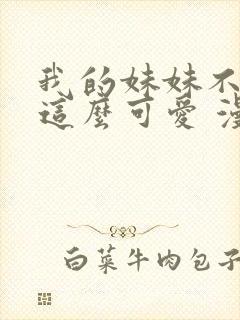 我的妹妹不
這麼可愛 漫
白菜牛肉包子